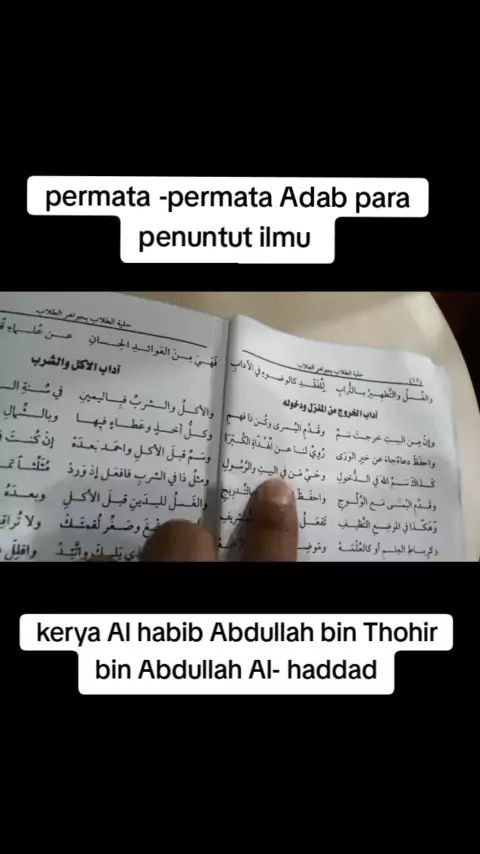 permata -permata Adab para
penuntut ilmu
حلية الطلاب بجواهر الطلاب
والغسل والتطهير بالتراب للفقد كالوضوء في الآداب
آداب الخروج من المنزل ودخوله
وإن من البيت خرجت سم وقدم اليسرى وكن ذا فهم
واحفظ دعاءً جاء عن خير الورى روي لنا عن
كذلك سم الله في الدخول وحي من في البيت والرسول
وقدم اليمنى مع الولوج واحفظ
وهكذا في الموضع النظيف تفعل
وكرباط العلم أو كالعلمة
حلية الطلاب بجواهر الطلاب
فهي من العوائد الحسان عن
آداب الأكل والشرب
والأكل والشرب فباليمين في سنة
وكل أخذ وعطاء فيها وبالشمال
وسم قبل الأكل واحمد بعده إن كنت
ومثل ذا في الشرب فافعل إذ ورد
والغسل لليدين قبل الأكل وبعده
وصغر لقمتك ولا
يليك واتئد
kerya Al habib Abdullah bin Thohir
bin Abdullah Al- haddad